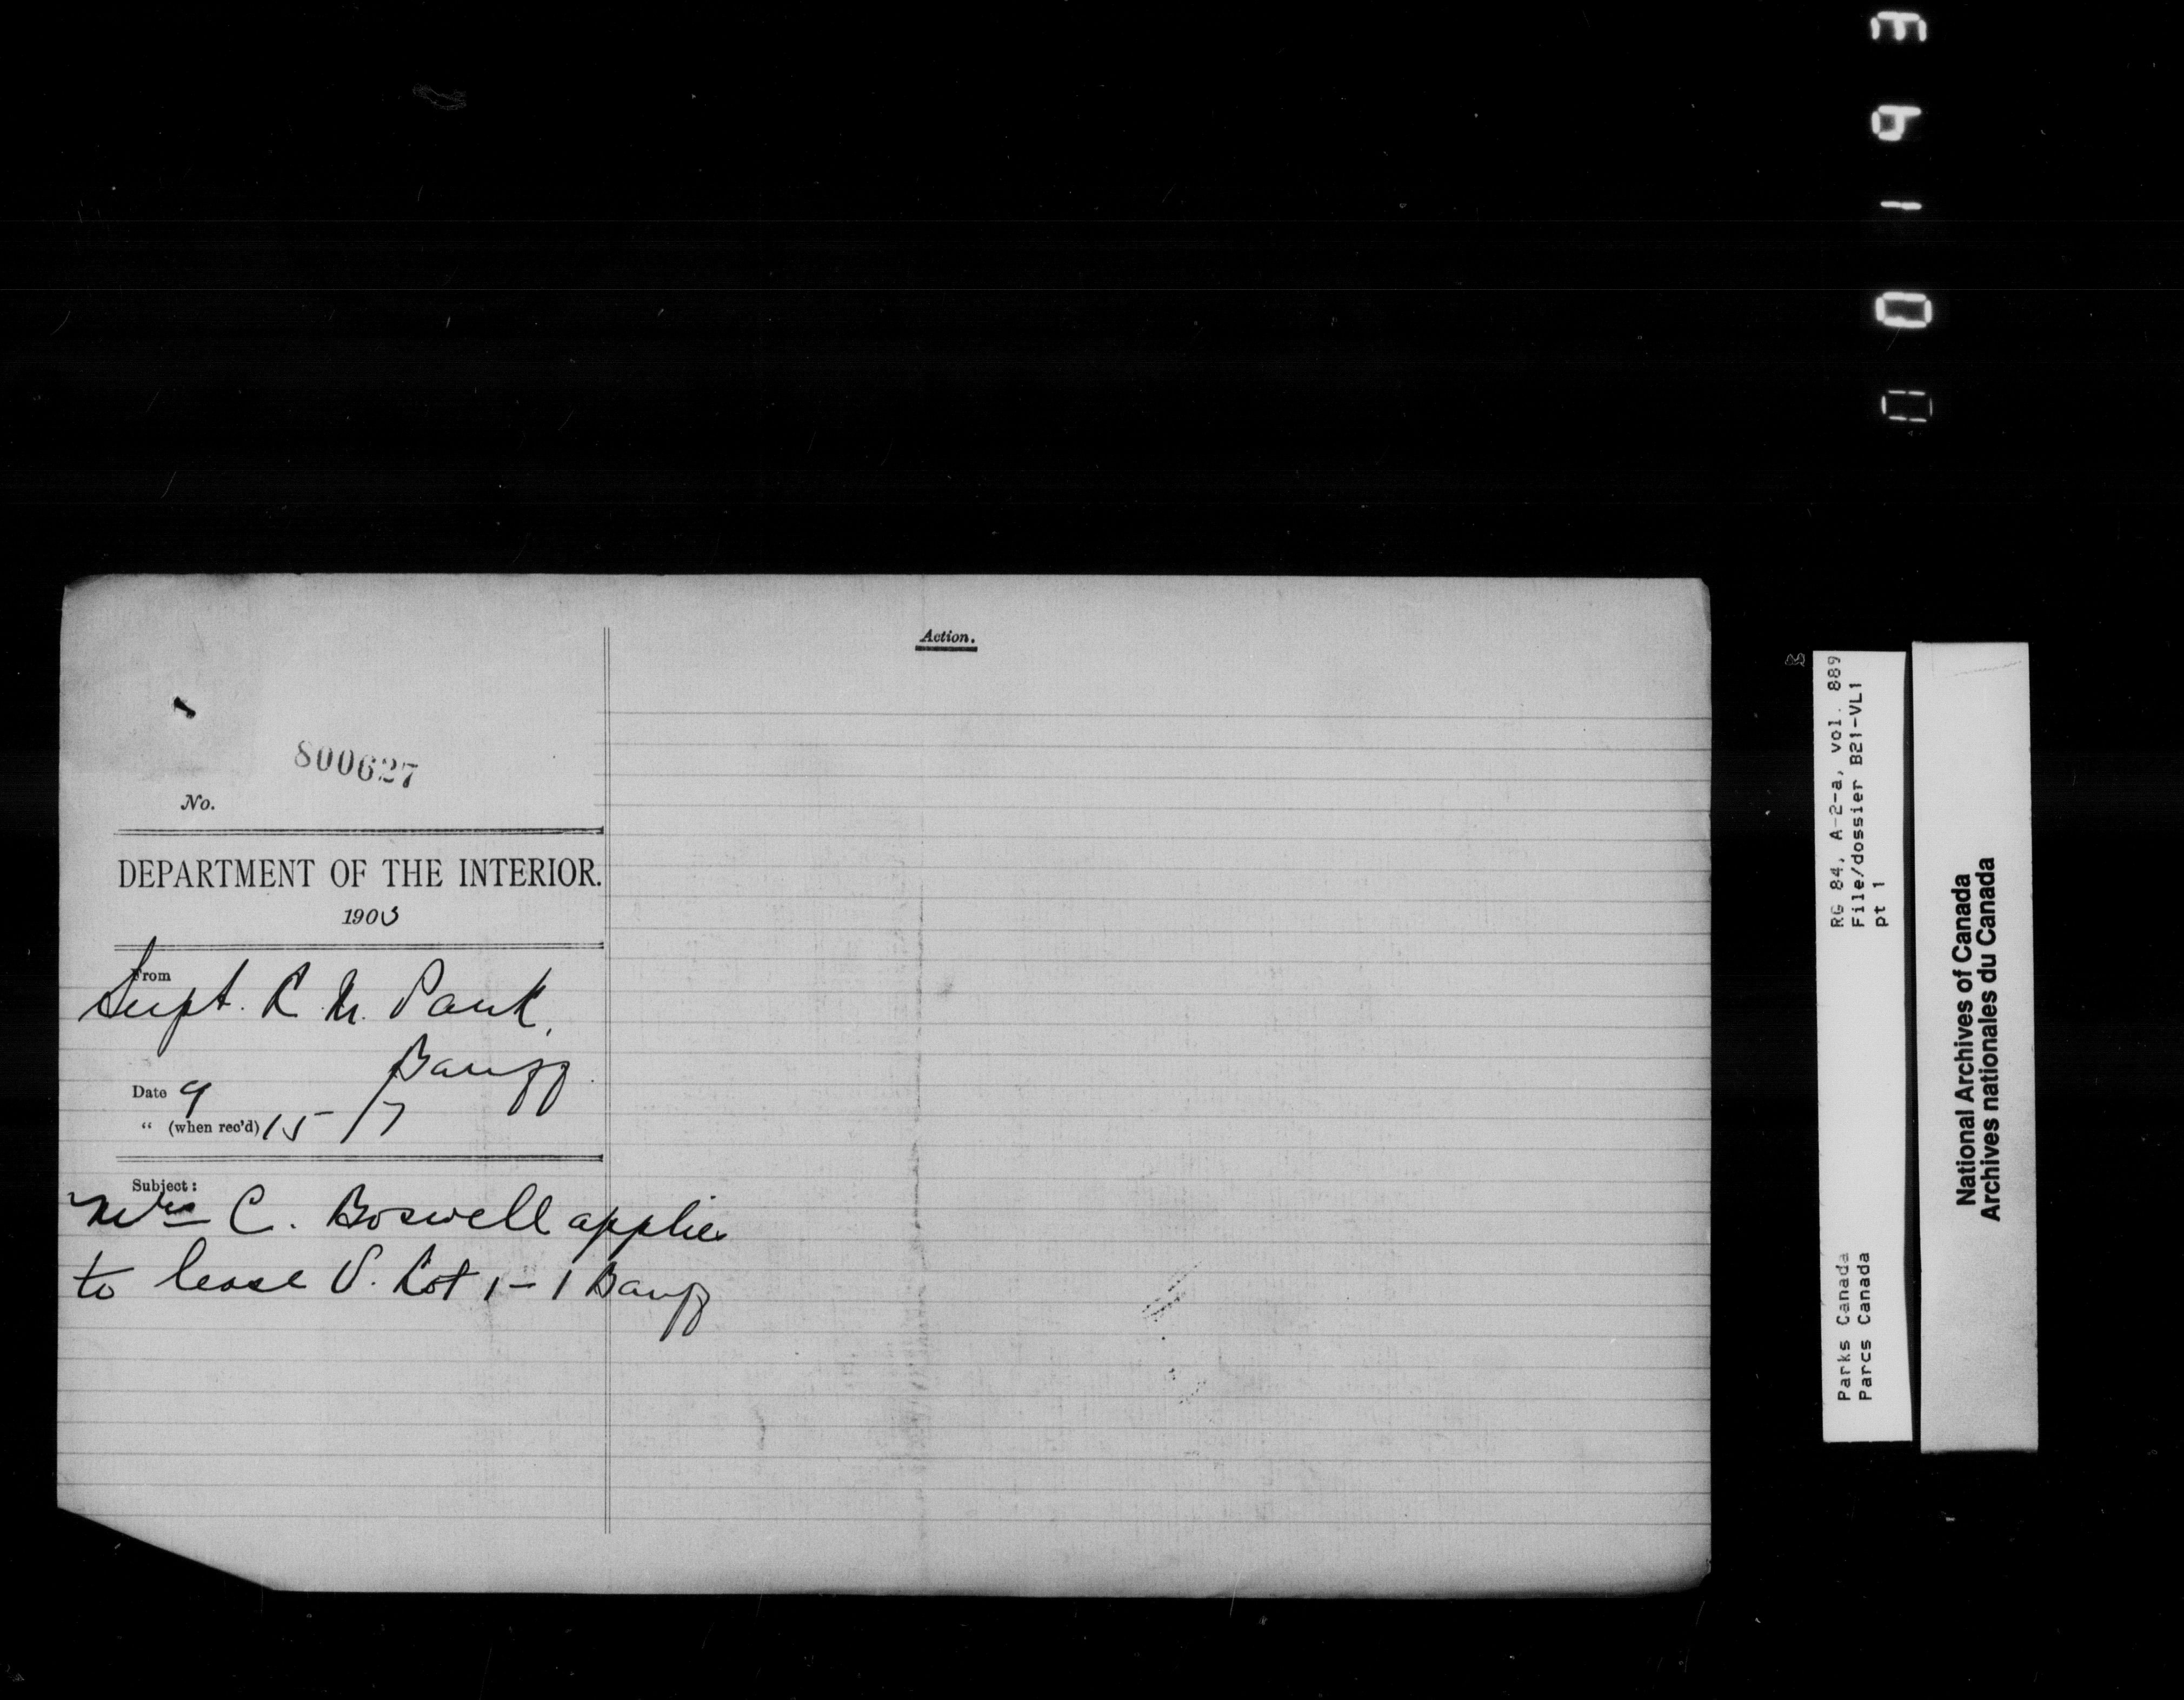 00193
Action.
800627
No.
DEPARTMENT OF THE INTERIOR.
1903
From
Supt. R. M. Park,
Banff.
Date 9
" (when rec'd) 15/7
Subject:
Mrs C. Boswell applies
to lease V. Lot 1-1 Banff
RG 84, A-2-a, vol. 889
File/dossier B21-VL1
pt 1
Parks Canada
Parcs Canada
National Archives of Canada
Archives nationales du Canada